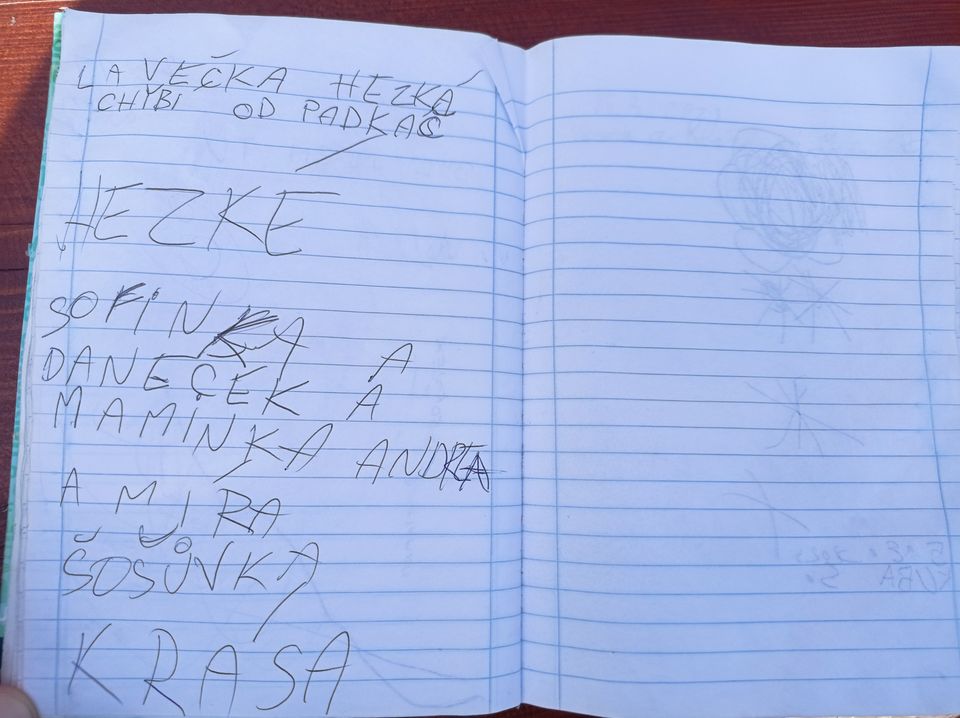 LAVEČKA HEZKÁ
CHYBI OD PADKAČ
HEZKÉ
SOFINKA
DANEČEK A A
MAMINKA ANDREA
A MÍRA
ŠOSŮVKA
KRÁSA